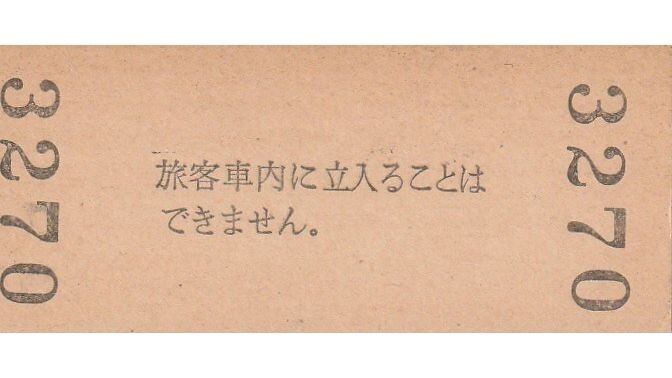 3270
旅客車内に立入ることは
できません。
3270